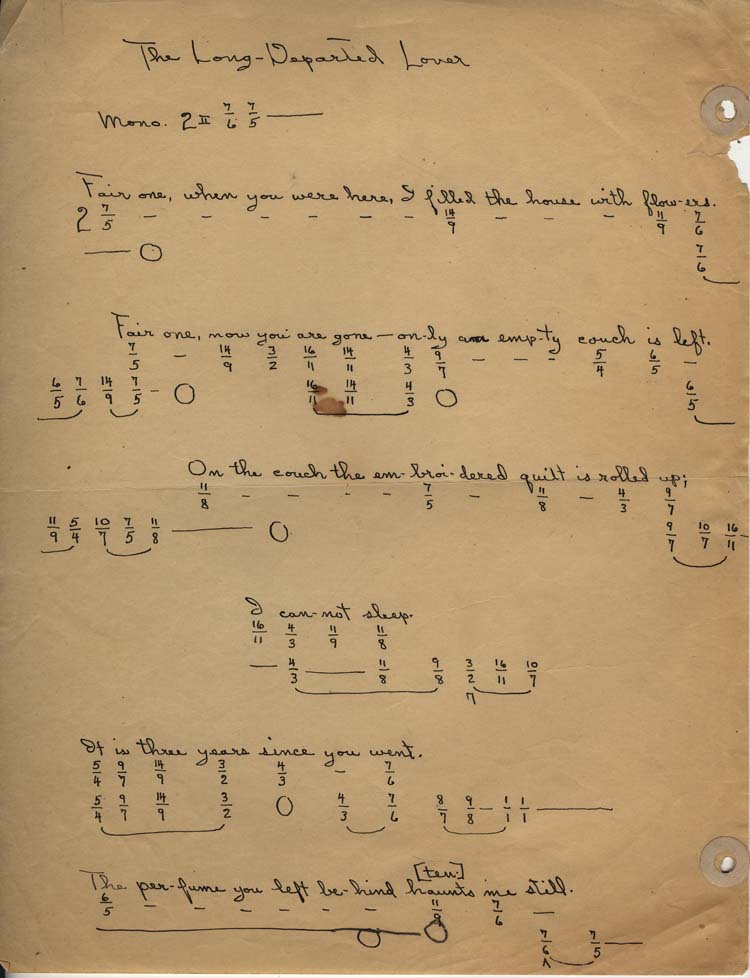 The Long-Departed Lover
Mono. 2 II 7/6 7/5 —
Fair one, when you were here, I filled the house with flow-ers.
2 7/5 – – – – – – 14/9 – – – 11/9 7/6
— O 7/6
Fair one, now you are gone — on-ly an emp-ty couch is left.
7/5 – 14/9 3/2 16/11 14/11 4/3 9/7 – – – 5/4 6/5 –
6/5 7/6 14/9 7/5 – O 16/11 14/11 4/3 O 6/5
On the couch the em-broi-dered quilt is rolled up;
11/8 – – – – 7/5 – 11/8 – 4/3 9/7
11/9 5/4 10/7 7/5 11/8 — O 9/7 10/7 16/11 –
I can-not sleep.
16/11 4/3 11/9 11/8
— 4/3 — 11/8 9/8 3/2 16/11 10/7
7
It is three years since you went.
5/4 9/7 14/9 3/2 4/3 – 7/6
5/4 9/7 14/9 3/2 O 4/3 7/6 8/7 9/8 – 1/1 1/1 —
[ten.]
The per-fume you left be-hind haunts me still.
6/5 – – – – – 11/9 7/6 —
7/6 7/5 —